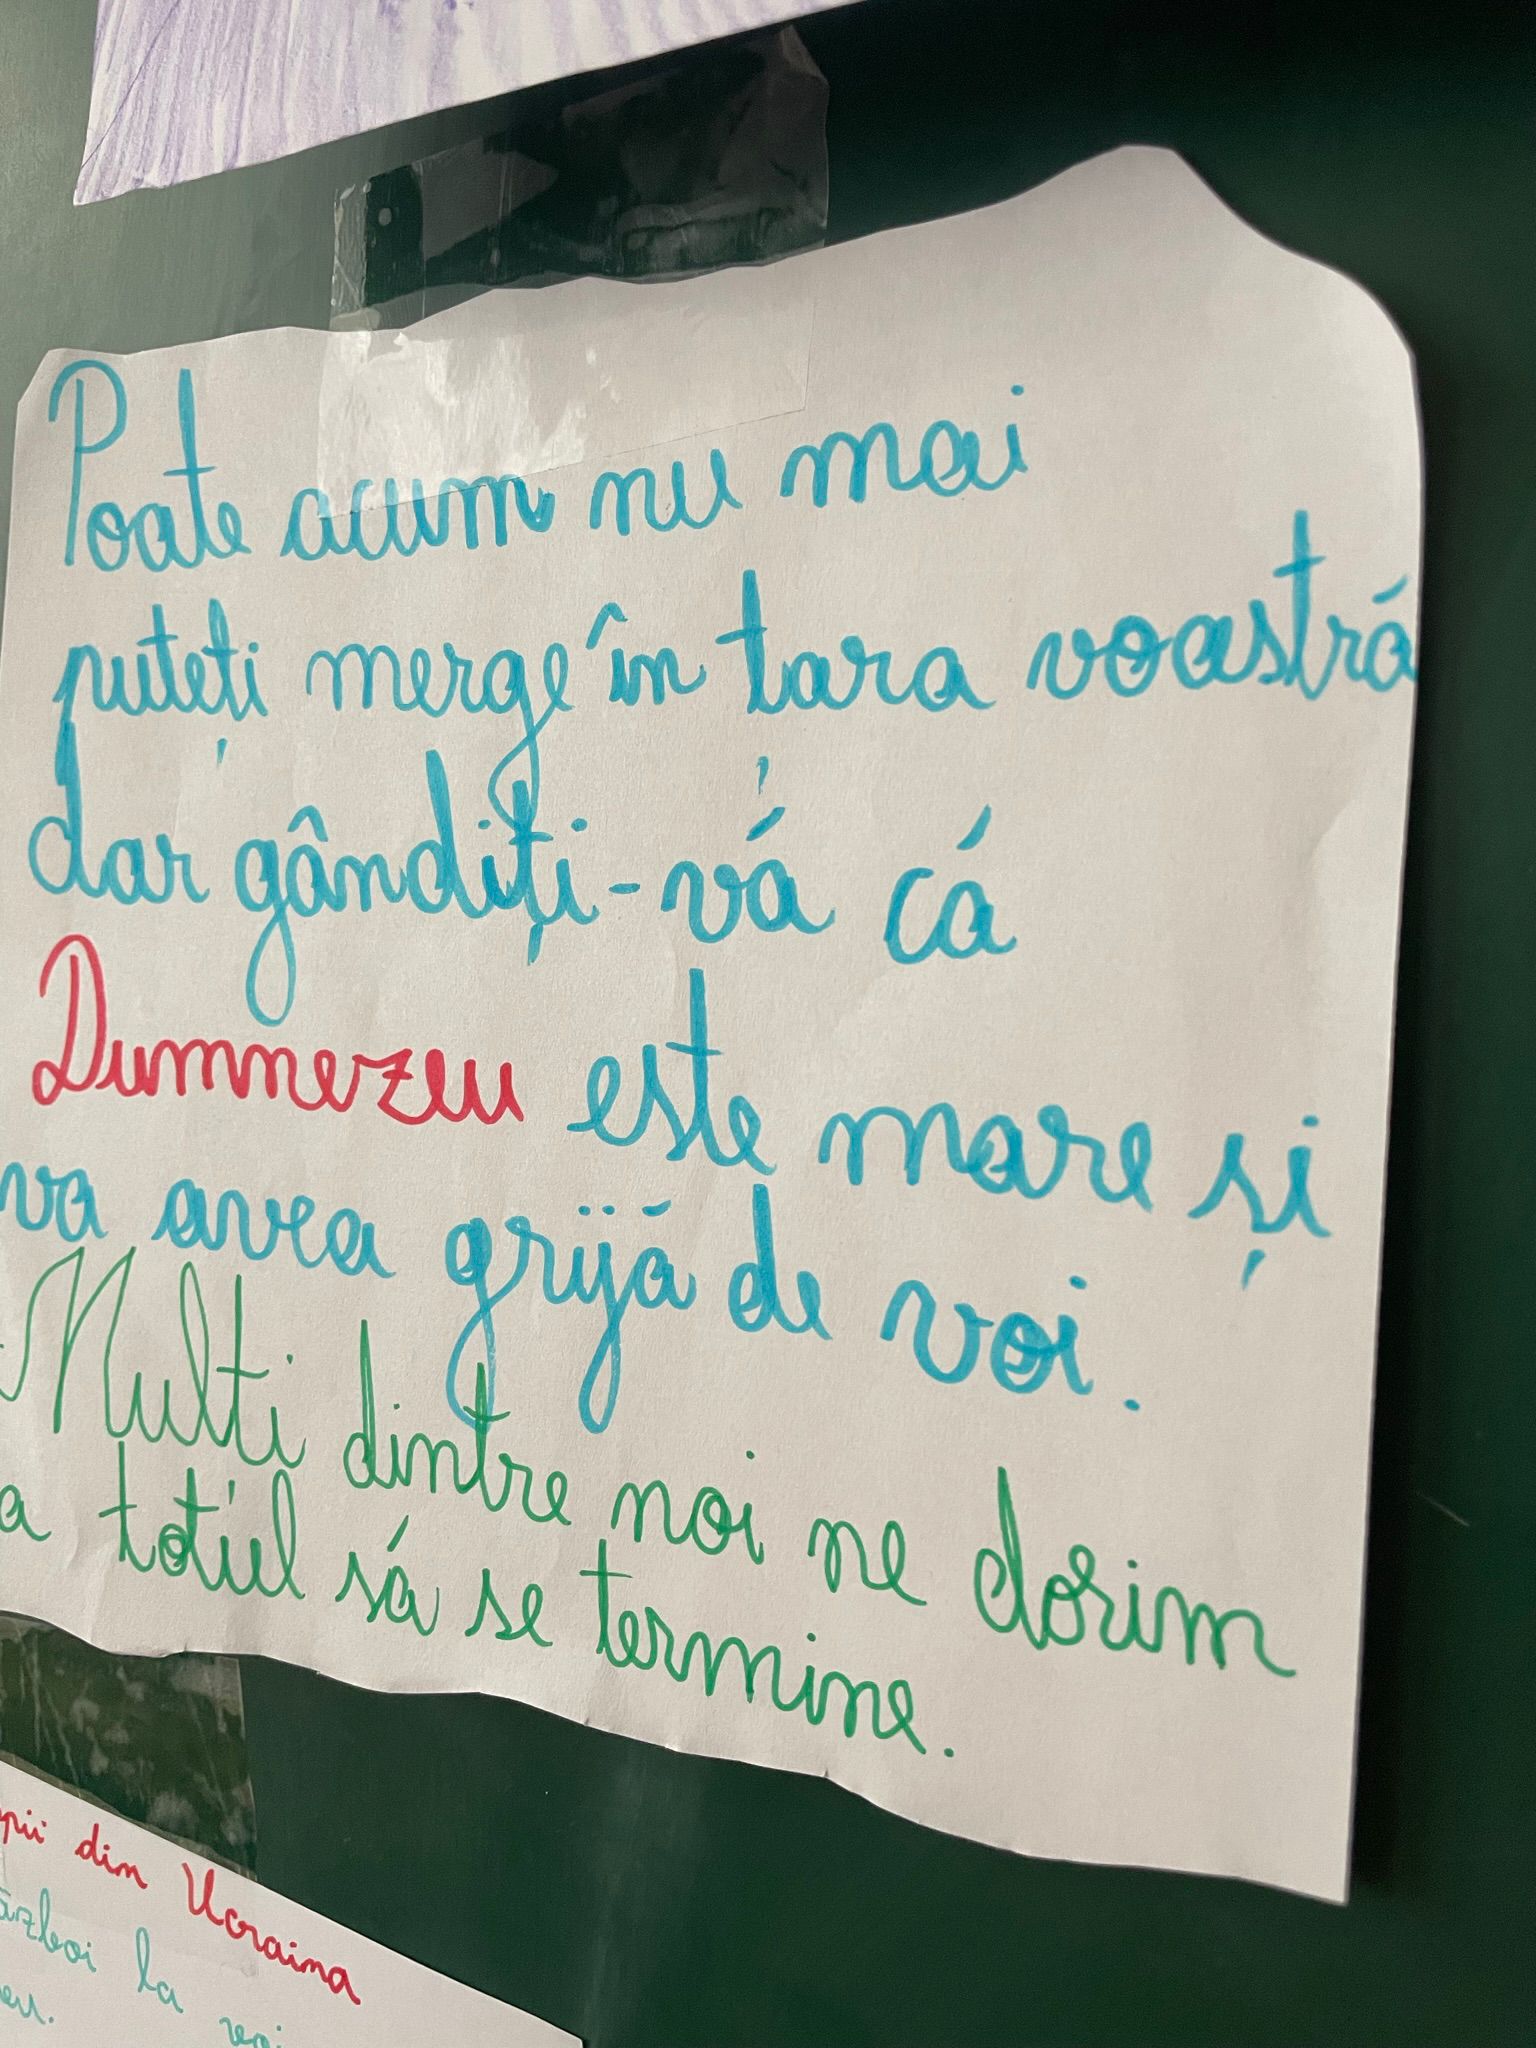 Poate acum nu mai
puteți merge în țara voastră
dar gândiți-vă că
Dumnezeu este mare și
va avea grijă de voi.
Mulți dintre noi ne dorim
a totul să se termine.
din Ucraina
la voi